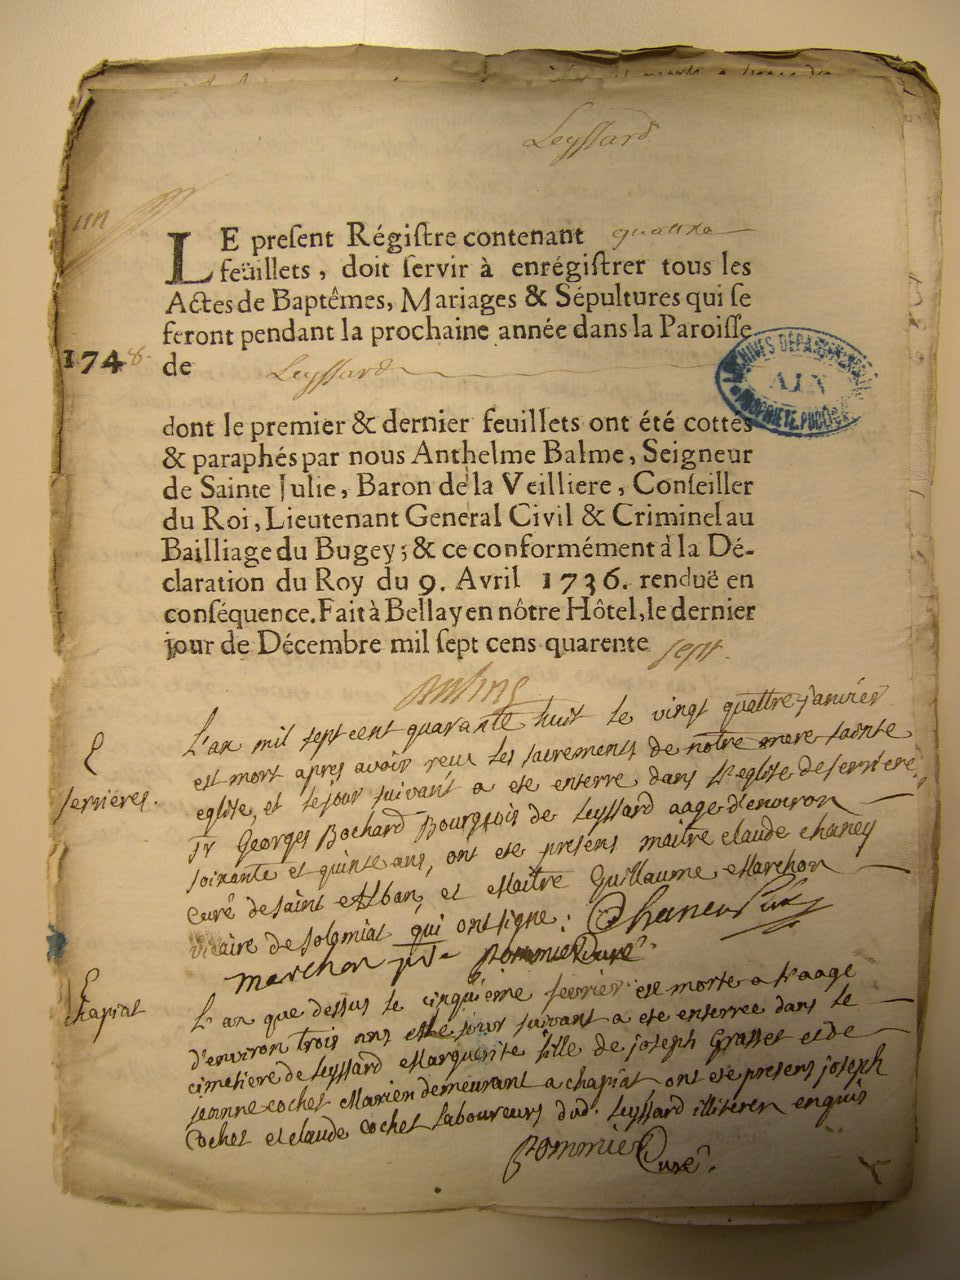 Leyssard
LE present Régistre contenant quattre
feüillets, doit servir à enrégistrer tous les
Actes de Baptêmes, Mariages & Sépultures qui se
feront pendant la prochaine année dans la Paroisse
1748.
de Leyssard
ARCHIVES DÉPARTEMENTALES
AIN
PROPRIÉTÉ PUBLIQUE
dont le premier & dernier feuillets ont été cottés
& paraphés par nous Anthelme Balme, Seigneur
de Sainte Julie, Baron de la Veilliere, Conseiller
du Roi, Lieutenant General Civil & Criminel au
Bailliage du Bugey; & ce conformément à la Dé-
claration du Roy du 9. Avril 1736. renduë en
conséquence. Fait à Bellay en nôtre Hôtel, le dernier
jour de Décembre mil sept cens quarente sept.
L'an mil sept cent quarante huit le vingt quattre janvier
est mort apres avoir reçu les sacrements de notre mere sainte
eglise, et le jour suivant a ete enterré dans l'eglise de serriere
serrières.
Sr Georges Bochard Bourgeois de Leyssard aagé d'environ
soixante et quinze ans, ont ete presens maitre claude chaney
curé de saint Alban, et Maitre Guillaume Marchon
vicaire de solomiat qui ont signe: Chaney Curé
marchon ptre pommier Curé
chapiat
L'an que dessus le cinquieme fevrier est morte a l'aage
d'environ trois ans et le jour suivant a ete enterrée dans le
cimetiere de Leyssard Marguerite fille de joseph Grasset et de
jeanne cochet Mariez demeurant a chapiat ont ete presens joseph
Cochet et claude cochet laboureurs dud. Leyssard illiteres enquis
pommier Curé.